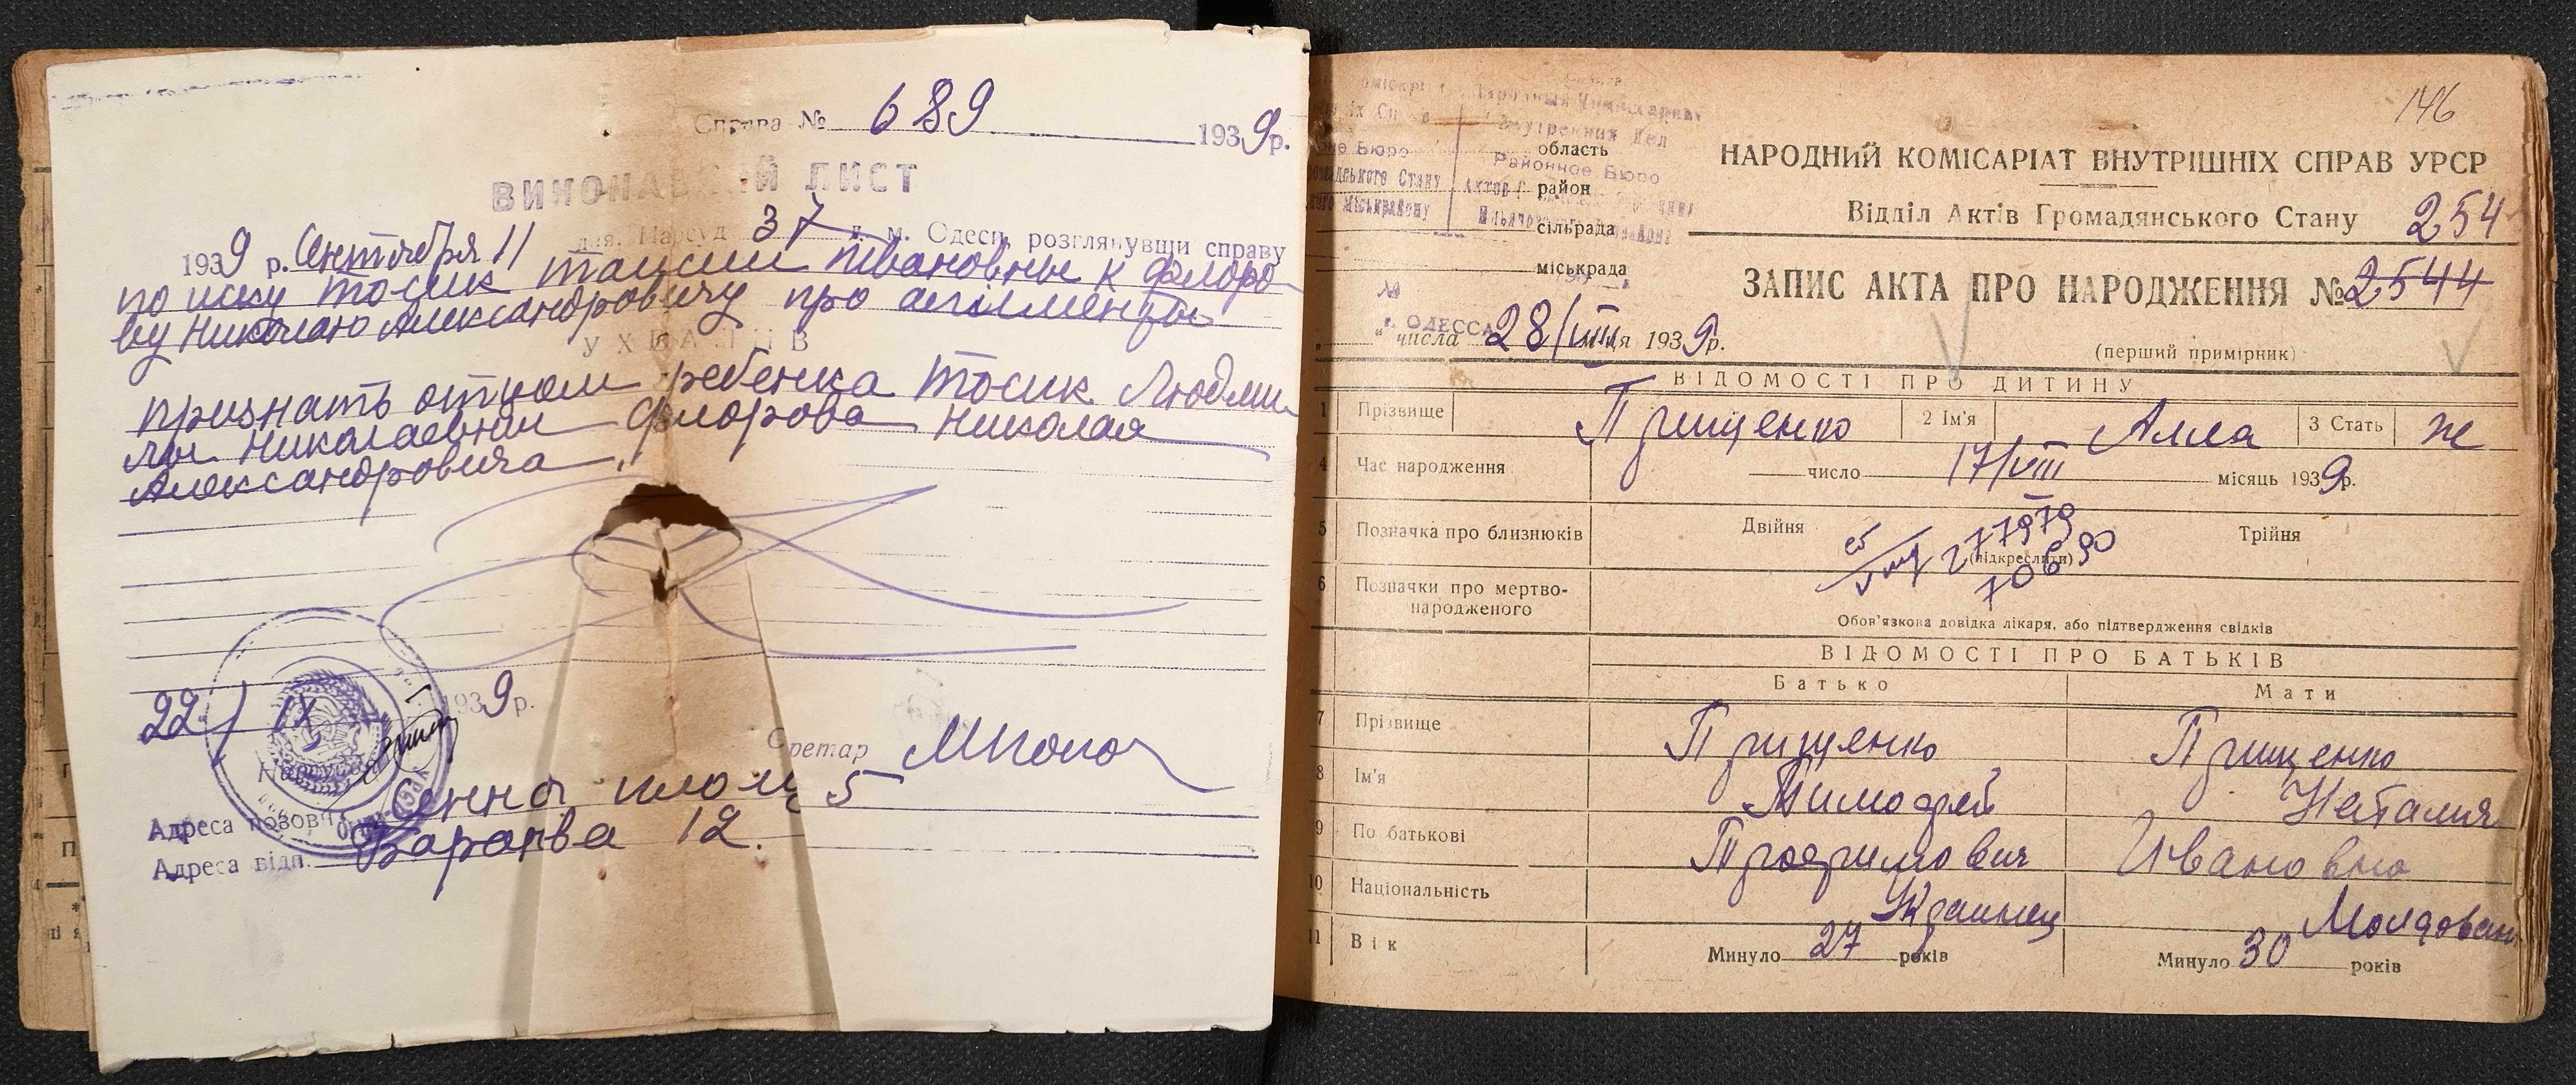 Справа № 689 1939 р.
ВИКОНАВЧИЙ ЛИСТ
1939 р. Сентября 11 дня. Нарсуд 37 д. м. Одеси, розглянувши справу
по иску Тосик Таисии Ивановны к Флоро-
ву Николаю Александровичу про алименты
УХВАЛИВ
признать отцом ребенка Тосик Людми-
лы Николаевны Флорова Николая
Александровича.
22/IX 1939 р.
Нарсуддя
Секретар
Адреса позов. Сенна площ 5
Адреса відп. 12.
146
Народный Комиссариат
Внутренних Дел
Районное Бюро
область
район
сільрада
міськрада
№
г. ОДЕССА
НАРОДНИЙ КОМІСАРІАТ ВНУТРІШНІХ СПРАВ УРСР
Відділ Актів Громадянського Стану 254
ЗАПИС АКТА ПРО НАРОДЖЕННЯ № 2544
„ числа 28/VIII м-ця 1939 р.
(перший примірник)
ВІДОМОСТІ ПРО ДИТИНУ
1 Прізвище Грищенко 2 Ім'я Алла 3 Стать ж
4 Час народження число 17/VIII місяць 1939 р.
5 Позначка про близнюків Двійня (підкреслити) Трійня
277979
70690
6 Позначки про мертво-
народженого
Обов'язкова довідка лікаря, або підтвердження свідків
ВІДОМОСТІ ПРО БАТЬКІВ
Батько Мати
7 Прізвище Грищенко Грищенко
8 Ім'я Тимофей Наталия
9 По батькові Трофимович Ивановна
10 Національність Украинец Молдован
11 Вік Минуло 27 років Минуло 30 років